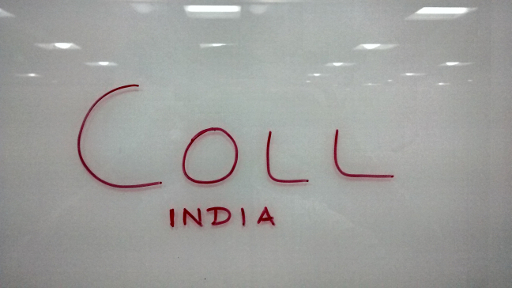 COLL
INDIA